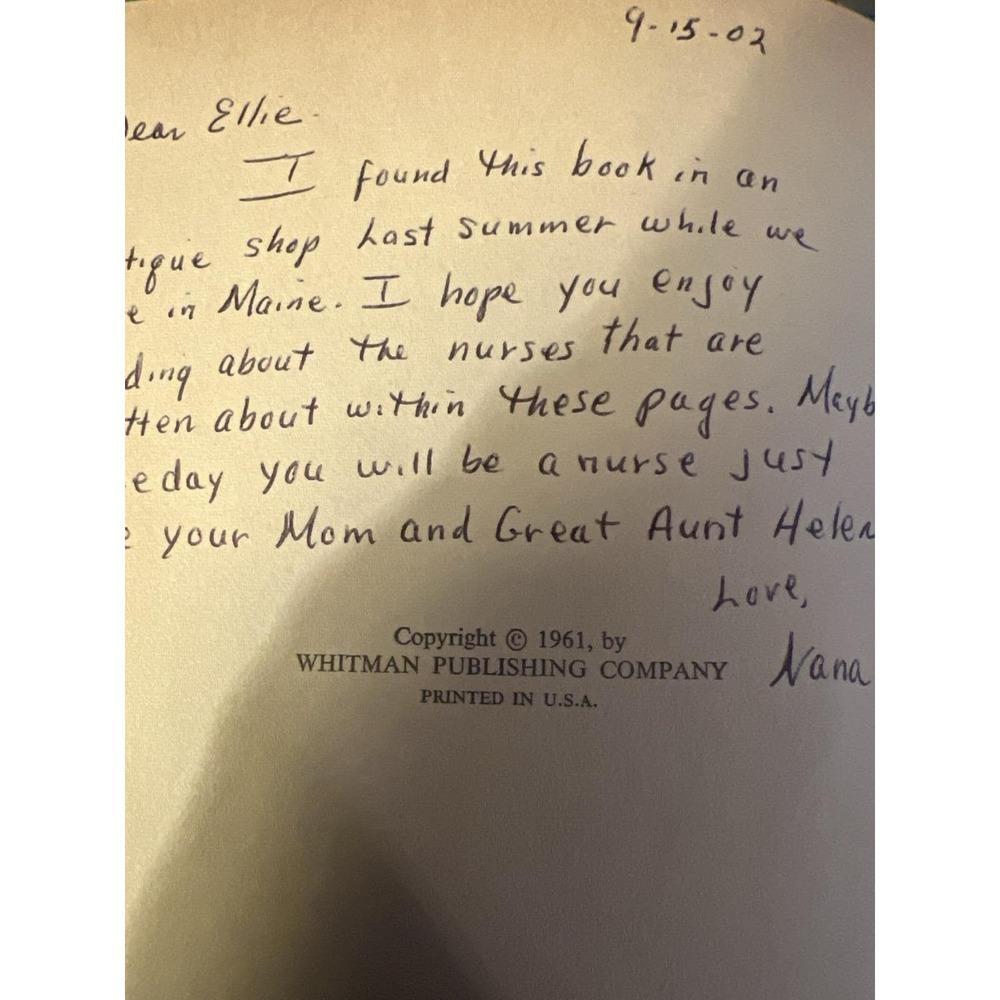 9-15-02
ear Ellie.
I found this book in an
tique shop Last summer while we
e in Maine. I hope you enjoy
ding about the nurses that are
tten about within these pages. Mayb
eday you will be a nurse just
e your Mom and Great Aunt Helen
Love,
Nana
Copyright © 1961, by
WHITMAN PUBLISHING COMPANY
PRINTED IN U.S.A.